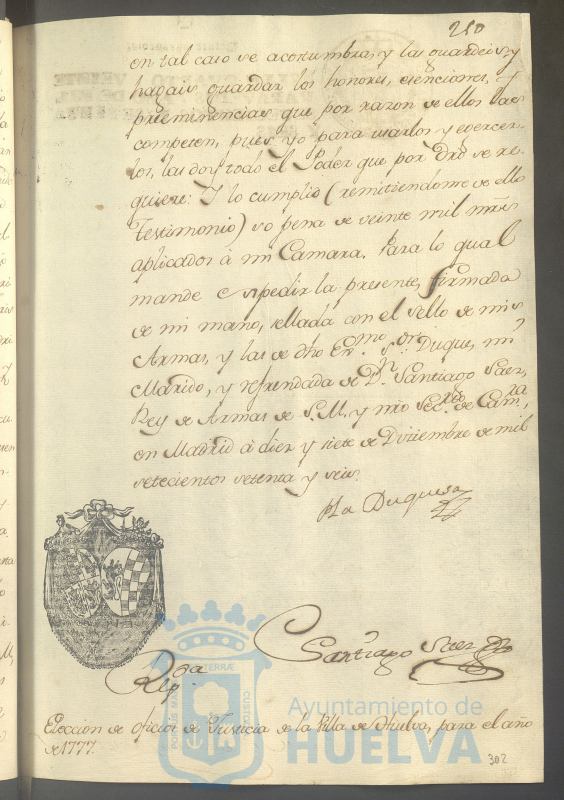 210
en tal caso se acostumbra, y las guardeis, y
hagais guardar los honores, esenciones, y
preeminencias que por razon de ellos les
competen, pues yo para usarlos y exercer-
los, les doy todo el Poder que por dro se re-
quiere: Y lo cumplio (remitiendome de ello
Testimonio) so pena de veinte mil mrs
aplicados à mi Camara. Para lo qual
mande expedir la presente, firmada
de mi mano, sellada con el Sello de mis
Armas, y las de dho Exmo Sor Duque, mi
Marido, y refrendada de Dn Santiago Saez,
Rey de Armas de S.M. y mio Secrio de Camra,
en Madrid à diez y siete de Diziembre de mil
setecientos setenta y seis.
La Duquesa
Santiago Saez
Rda
Eleccion de oficios de Justicia de la Villa de Huelva, para el año
de 1777.
302
PORTUS MARIS ET TERRÆ CUSTODIA
Ayuntamiento de
HUELVA